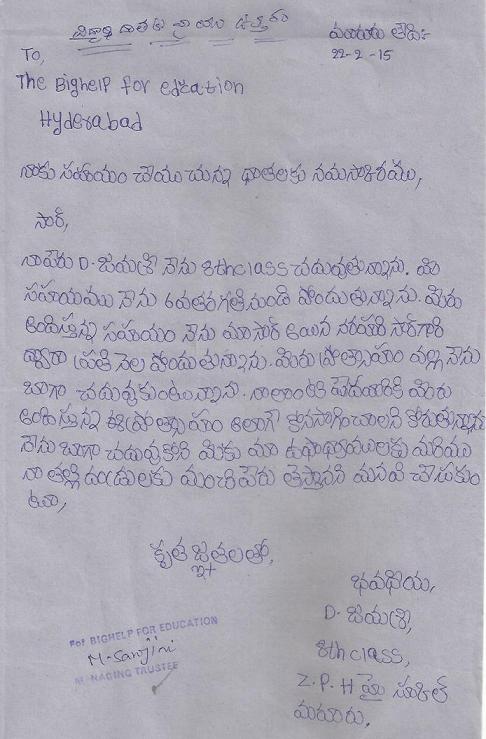 విద్యార్థి దాతకు వ్రాయు ఉత్తరం
మారూరు తేది:-
22-2-15
To,
The Bighelp for edzation
Hyderabad
నాకు సహాయం చేయు చున్న ధాతలకు నమస్కారము,
సార్,
నా పేరు D. జయశ్రీ నేను 8th class చదువుతున్నాను. మీ
సహాయము నేను 6వతరగతి నుండి పొందుతున్నాను. మీరు
అందిస్తున్న సహాయం నేను మా సార్ అయిన నరహరి సార్ గారి
ద్వారా ప్రతి నెల పొందుతున్నాను. మీరు ప్రోత్సాహం వల్ల నేను
బాగా చదువుకుంటున్నాను. నాలాంటి పేదవారికి మీరు
అందిస్తున్న ఈ ప్రోత్సాహం అలాగే కొనసాగించాలని కోరుతున్నాను
నేను బాగా చదువుకొని మీకు మా ఉపాధ్యాయులకు మరియు
నా తల్లి దండ్రులకు మంచి పేరు తెస్తానని మనవి చేసుకుం
టూ,
కృతజ్ఞతలతో,
భవధీయ,
D. జయశ్రీ,
8th class,
Z.P.H హై స్కూల్
మరూరు.
For BIGHELP FOR EDUCATION
M. Sarojini
MANAGING TRUSTEE